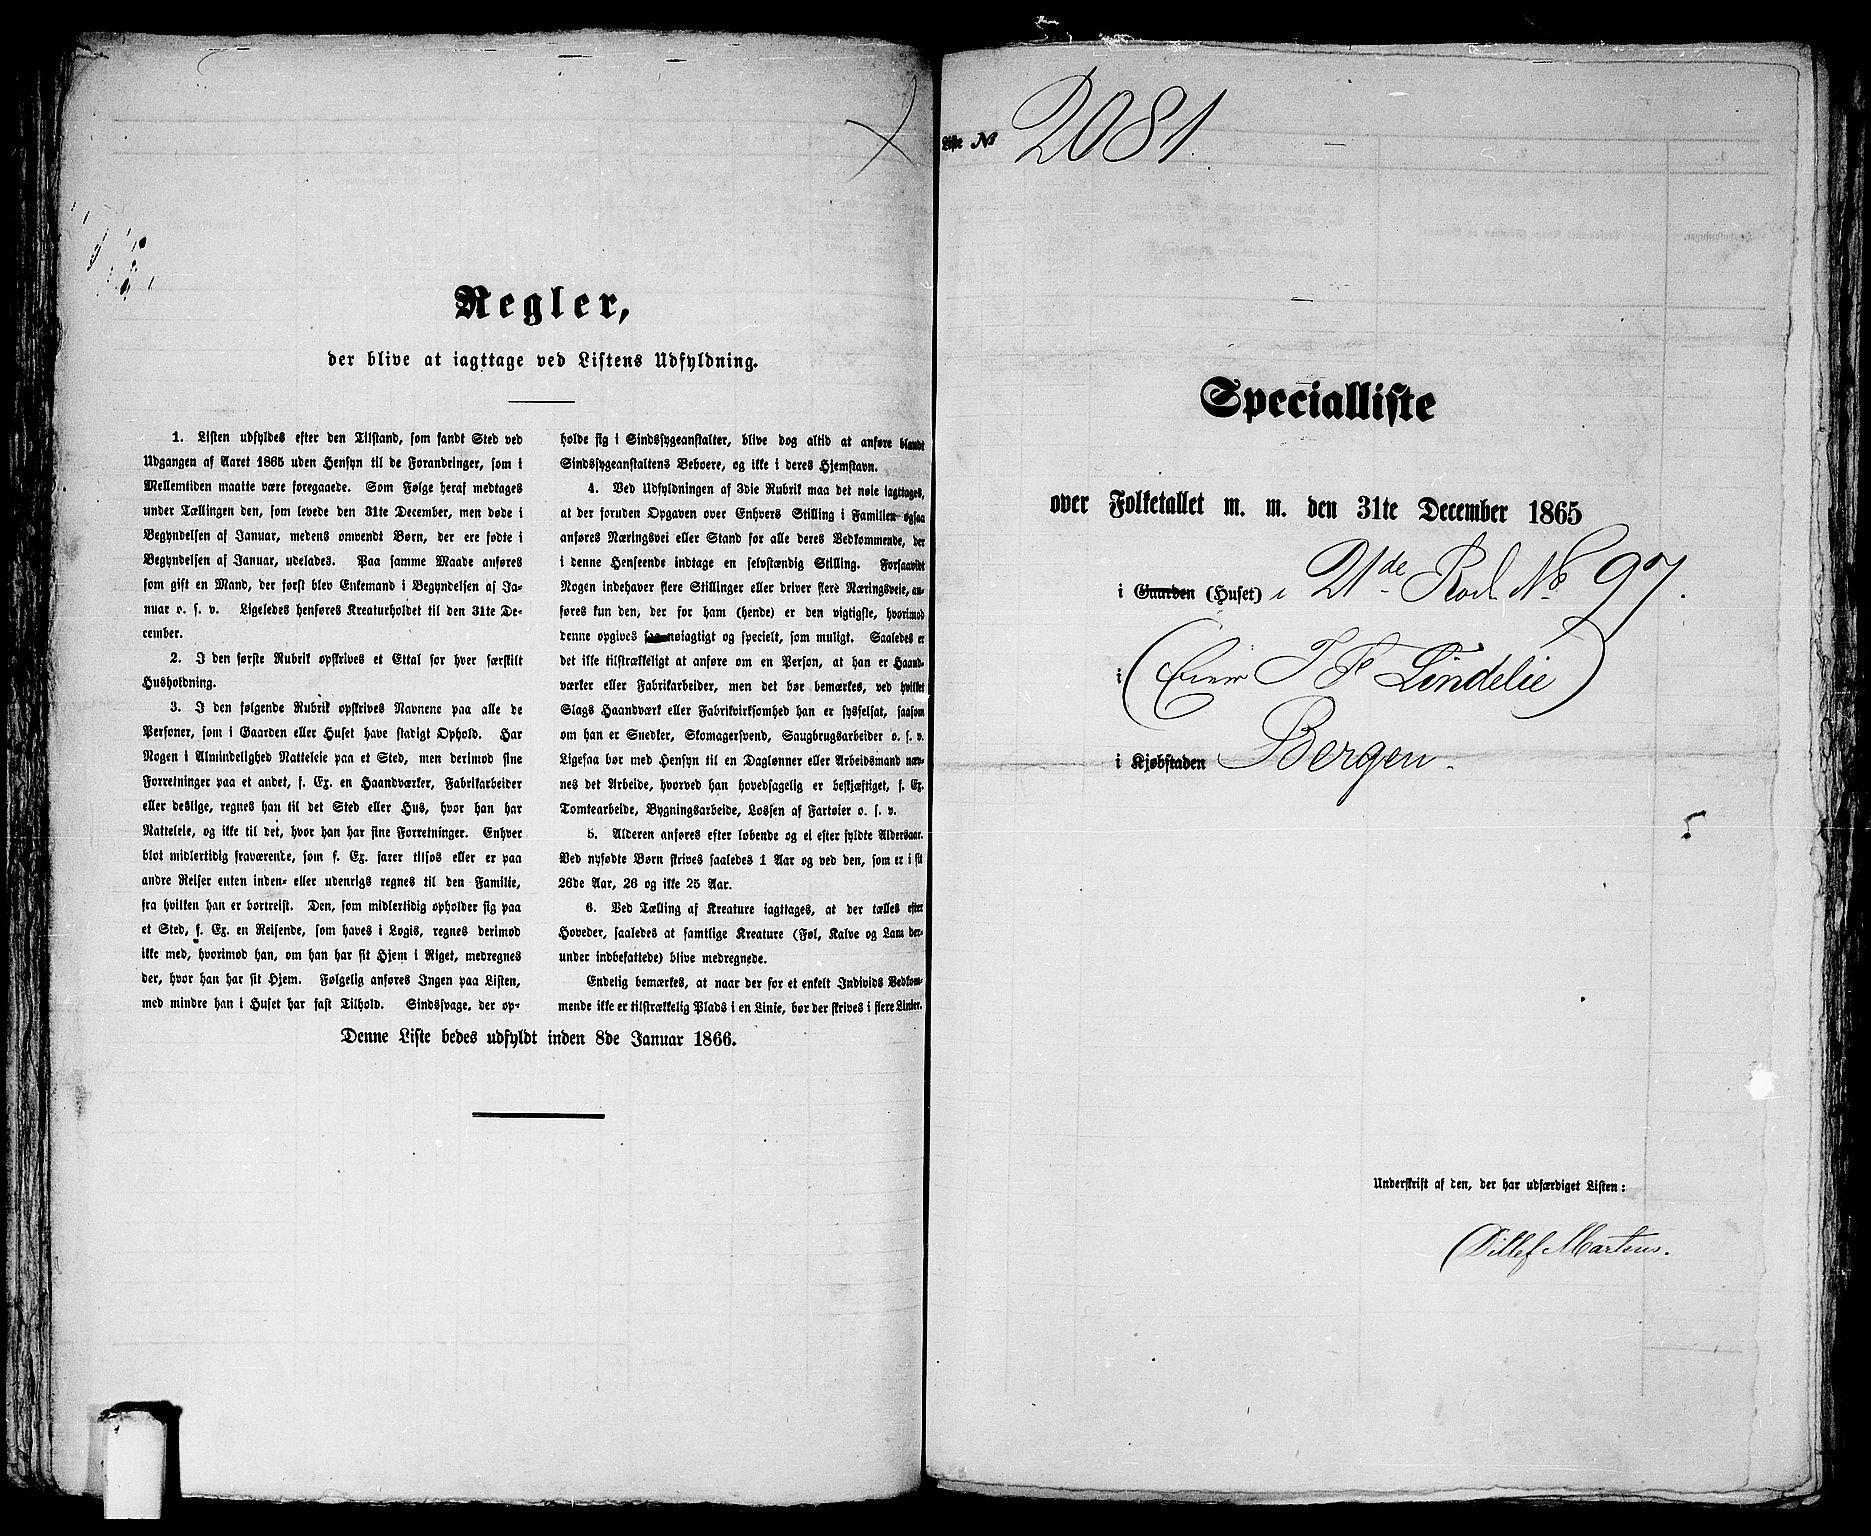 Regler,
der blive at iagttage ved Listens Udfyldning.
1. Listen udfyldes efter den Tilstand, som fandt Sted ved
Udgangen af Aaret 1865 uden Hensyn til de Forandringer, som i
Mellemtiden maatte være foregaaede. Som Følge heraf medtages
under Tællingen den, som levede den 31te December, men døde i
Begyndelsen af Januar, medens omvendt Børn, der ere fødte i
Begyndelsen af Januar, udelades. Paa samme Maade anføres
som gift en Mand, der først blev Enkemand i Begyndelsen af Ja-
nuar o. s. v. Ligeledes henføres Kreaturholdet til den 31te De-
cember.
2. I den første Rubrik opskrives et Ettal for hver særskilt
Husholdning.
3. I den følgende Rubrik opskrives Navnene paa alle de
Personer, som i Gaarden eller Huset have stadigt Ophold. Har
Nogen i Almindelighed Natteleie paa et Sted, men derimod sine
Forretninger paa et andet, f. Ex. en Haandværker, Fabrikarbeider
eller deslige, regnes han til det Sted eller Hus, hvor han har
Natteleie, og ikke til det, hvor han har sine Forretninger. Enhver
blot midlertidig fraværende, som f. Ex. farer tilsøs eller er paa
andre Reiser enten inden- eller udenrigs regnes til den Familie,
fra hvilken han er bortreist. Den, som midlertidig opholder sig paa
et Sted, f. Ex. en Reisende, som haves i Logis, regnes derimod
ikke med, hvorimod han, om han har sit Hjem i Riget, medregnes
der, hvor han har sit Hjem. Følgelig anføres Ingen paa Listen,
med mindre han i Huset har fast Tilhold. Sindssvage, der op-
holde sig i Sindssygeanstalter, blive dog altid at anføre blandt
Sindssygeanstaltens Beboere, og ikke i deres Hjemstavn.
4. Ved Udfyldningen af 3die Rubrik maa det nøie iagttages,
at der foruden Opgaven over Enhvers Stilling i Familien ogsaa
anføres Næringsvei eller Stand for alle deres Vedkommende, der
i denne Henseende indtage en selvstændig Stilling. Forsaavidt
Nogen indehaver flere Stillinger eller driver flere Næringsveie, an-
føres kun den, der for ham (hende) er den vigtigste, hvorimod
denne opgives saa nøiagtigt og specielt, som muligt. Saaledes er
det ikke tilstrækkeligt at anføre om en Person, at han er Haand-
værker eller Fabrikarbeider, men det bør bemærkes, ved hvilket
Slags Haandværk eller Fabrikvirksomhed han er sysselsat, saasom
om han er Snedker, Skomagersvend, Saugbrugsarbeider o. s. v.
Ligesaa bør med Hensyn til en Daglønner eller Arbeidsmand næv-
nes det Arbeide, hvorved han hovedsagelig er beskjæftiget, f. Ex.
Tomtearbeide, Bygningsarbeide, Lossen af Fartøier o. s. v.
5. Alderen anføres efter løbende og ei efter fyldte Aldersaar.
Ved nyfødte Børn skrives saaledes 1 Aar og ved den, som er i sit
26de Aar, 26 og ikke 25 Aar.
6. Ved Tælling af Kreature iagttages, at der tælles efter
Hoveder, saaledes at samtlige Kreature (Føl, Kalve og Lam der-
under indbefattede) blive medregnede.
Endelig bemærkes, at naar der for et enkelt Individs Vedkom-
mende ikke er tilstrækkelig Plads i en Linie, bør der skrives i flere Linier.
Denne Liste bedes udfyldt inden 8de Januar 1866.
Liste № 2081.
Specialliste
over Folketallet m. m. den 31te December 1865
i Gaarden (Huset) i 21de Rod No 97.
i (Eier J F Lindelie)
i Kjøbstaden Bergen.
Underskrift af den, der har udfærdiget Listen:
Ditlef Martens.